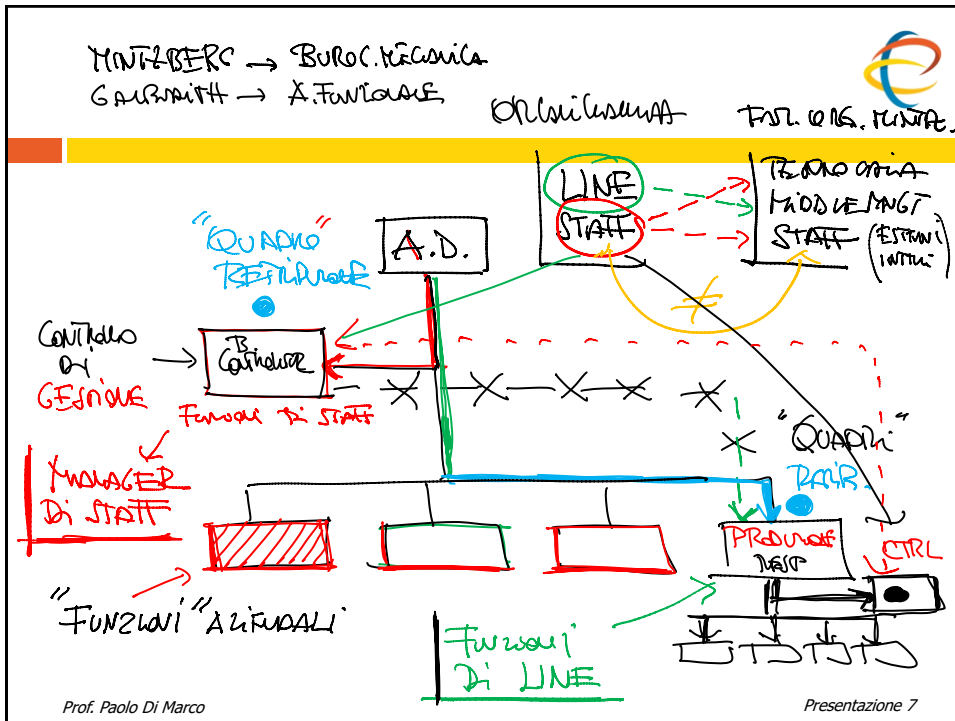 MINTZBERG → BUROC. MECCANICA
GALBRAITH → A. FUNZIONALE
ORGANIGRAMMA
ORG. MINTZ.
LINE
STAFF
TECNO
MIDDLE MNGT
STAFF (ESTERNI
INTERNI)
"QUADRO"
A.D.
CONTROLLO
DI
GESTIONE
CONTROLLER
FUNZIONI DI STAFF
MANAGER
DI STAFF
"QUADRI"
PRODUZIONE
RESP
CTRL
"FUNZIONI" AZIENDALI
FUNZIONI
DI LINE
Prof. Paolo Di Marco
Presentazione 7